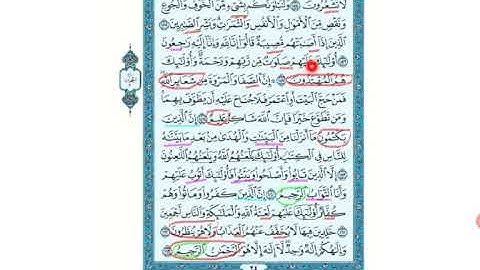 لَّا تَشْعُرُونَ ۝١٥٤ وَلَنَبْلُوَنَّكُم بِشَىْءٍ مِّنَ ٱلْخَوْفِ وَٱلْجُوعِ
وَنَقْصٍ مِّنَ ٱلْأَمْوَٰلِ وَٱلْأَنفُسِ وَٱلثَّمَرَٰتِ وَبَشِّرِ ٱلصَّٰبِرِينَ ۝١٥٥
ٱلَّذِينَ إِذَآ أَصَٰبَتْهُم مُّصِيبَةٌ قَالُوٓا۟ إِنَّا لِلَّهِ وَإِنَّآ إِلَيْهِ رَٰجِعُونَ
۝١٥٦ أُو۟لَٰٓئِكَ عَلَيْهِمْ صَلَوَٰتٌ مِّن رَّبِّهِمْ وَرَحْمَةٌ وَأُو۟لَٰٓئِكَ
هُمُ ٱلْمُهْتَدُونَ ۝١٥٧ إِنَّ ٱلصَّفَا وَٱلْمَرْوَةَ مِن شَعَآئِرِ ٱللَّهِ
فَمَنْ حَجَّ ٱلْبَيْتَ أَوِ ٱعْتَمَرَ فَلَا جُنَاحَ عَلَيْهِ أَن يَطَّوَّفَ بِهِمَا
وَمَن تَطَوَّعَ خَيْرًا فَإِنَّ ٱللَّهَ شَاكِرٌ عَلِيمٌ ۝١٥٨ إِنَّ ٱلَّذِينَ
يَكْتُمُونَ مَآ أَنزَلْنَا مِنَ ٱلْبَيِّنَٰتِ وَٱلْهُدَىٰ مِنۢ بَعْدِ مَا بَيَّنَّٰهُ
لِلنَّاسِ فِى ٱلْكِتَٰبِ أُو۟لَٰٓئِكَ يَلْعَنُهُمُ ٱللَّهُ وَيَلْعَنُهُمُ ٱللَّٰعِنُونَ
۝١٥٩ إِلَّا ٱلَّذِينَ تَابُوا۟ وَأَصْلَحُوا۟ وَبَيَّنُوا۟ فَأُو۟لَٰٓئِكَ أَتُوبُ عَلَيْهِمْ
وَأَنَا ٱلتَّوَّابُ ٱلرَّحِيمُ ۝١٦٠ إِنَّ ٱلَّذِينَ كَفَرُوا۟ وَمَاتُوا۟ وَهُمْ
كُفَّارٌ أُو۟لَٰٓئِكَ عَلَيْهِمْ لَعْنَةُ ٱللَّهِ وَٱلْمَلَٰٓئِكَةِ وَٱلنَّاسِ أَجْمَعِينَ
۝١٦١ خَٰلِدِينَ فِيهَا لَا يُخَفَّفُ عَنْهُمُ ٱلْعَذَابُ وَلَا هُمْ يُنظَرُونَ ۝١٦٢
وَإِلَٰهُكُمْ إِلَٰهٌ وَٰحِدٌ لَّآ إِلَٰهَ إِلَّا هُوَ ٱلرَّحْمَٰنُ ٱلرَّحِيمُ ۝١٦٣